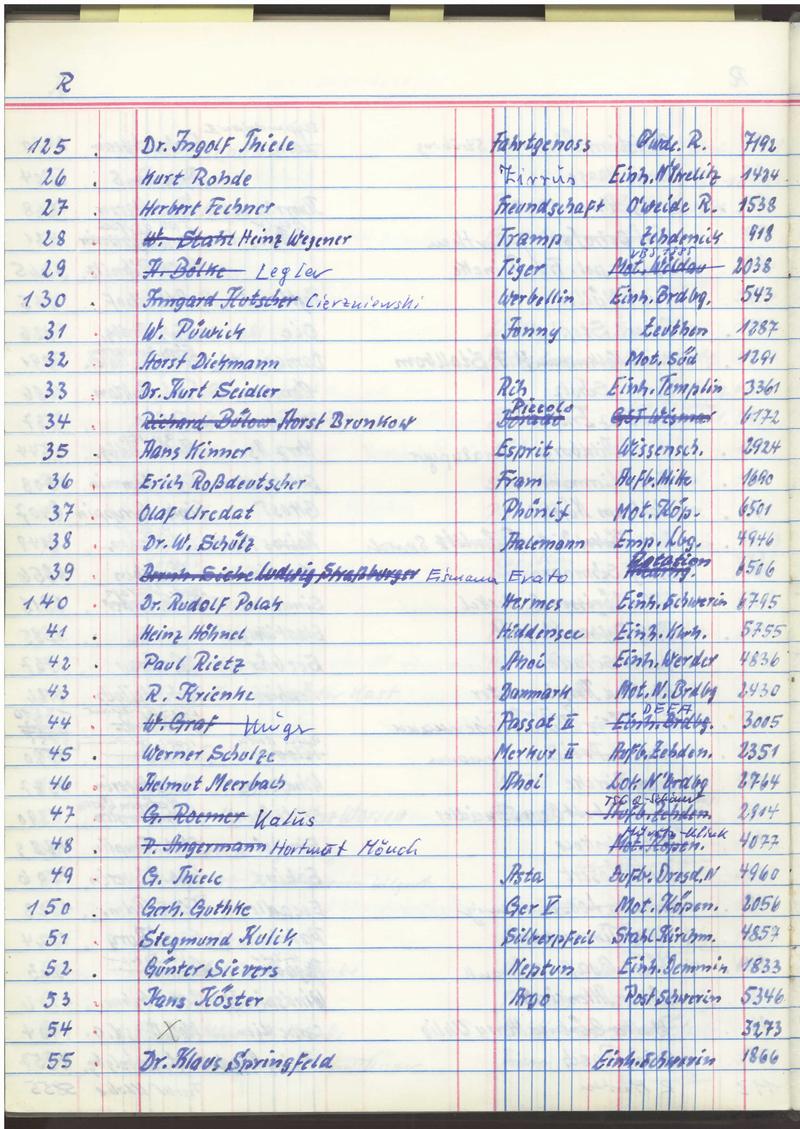 R
125 . Dr. Ingolf Thiele Fahrtgenoss R. 7192
26 . Kurt Rohde Zirrus Einh. N'trelitz 1424
27 . Herbert Fechner Freundschaft O'weide R. 1538
28 . W. Stahl Heinz Wegener Tramp Zehdenick 918
29 . A. Bölke Legler Tiger Mot. Wildau 2038
130 . Irmgard Kutscher Cierzniewski Werbellin Einh. Brdbg. 543
31 . W. Püwick Zeuthen 1287
32 . Horst Dickmann Mot. Süd 1291
33 . Dr. Kurt Seidler Rih Einh. Templin 3361
34 . Richard Bülow Horst Brunkow Piccolo GST Wismar 6172
35 . Hans Kinner Esprit Wissensch. 2924
36 . Erich Roßdeutscher Fram Aufb. Mitte 1690
37 . Olaf Uredat Phönix Mot. Köp. 6501
38 . Dr. W. Schülz Aalemann Emp. Lbg. 4946
39 . Ludwig Straßburger Eismann Erato Rotation 6506
140 . Dr. Rudolf Polak Hermes Einh. Schwerin 6795
41 . Heinz Höhnel Hiddensee Einh. Kwh. 5755
42 . Paul Rietz Ahoi Einh. Werder 4836
43 . R. Krienke Danmark Mot. N. Brdbg 2430
44 . W. Graf Passat II DEFA Einh. Brdbg. 3005
45 . Werner Schulze Merkur II Aufb. Zehden. 2351
46 . Helmut Meerbach Ahoi Lok. N'brdbg 2764
47 . G. Roemer Kalus Aufb. Zehden. 2914
48 . P. Angermann Hartmut Mönch Mot. Köpen. 4077
49 . G. Thiele Asta Aufb. Dresd. N 4960
150 . Gerh. Guthke Ger V Mot. Köpen. 2056
51 . Siegmund Kulik Silberpfeil Stahl Kirchm. 4857
52 . Günter Sievers Neptun Einh. Demmin 1833
53 . Hans Köster Argo Post Schwerin 5346
54 X 3273
55 Dr. Klaus Springfeld Einh. Schwerin 1866